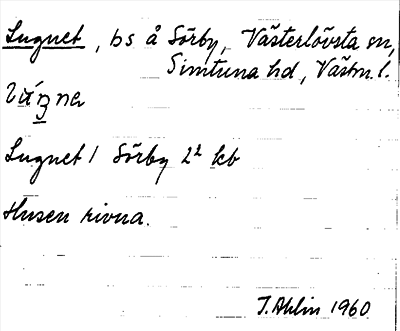 Lugnet, bs å Sörby, Västerlövsta sn,
Simtuna hd, Västm. l.
Lugnet 1 Sörby 2² kb
Husen rivna.
T. Ahlin 1960